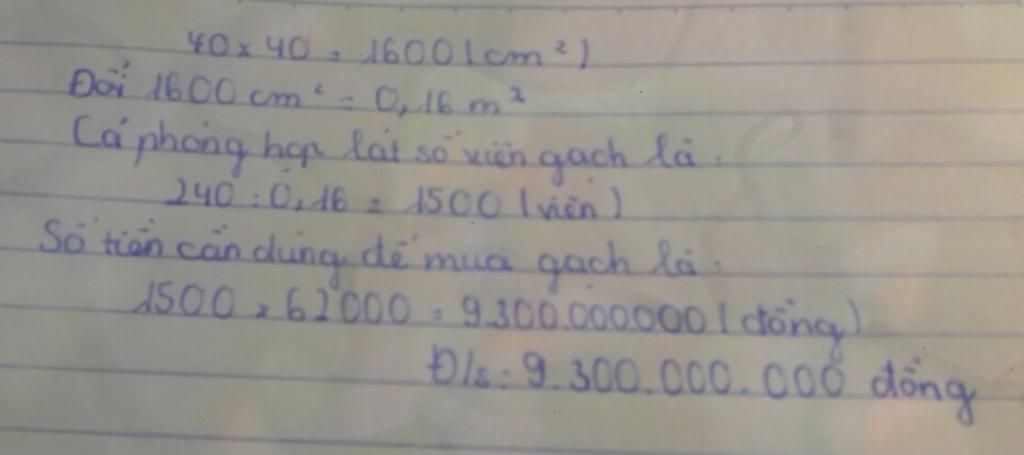 40 x 40 = 1600 (cm²)
Đổi 1600 cm² = 0,16 m²
Cả phòng họp lát số viên gạch là:
240 : 0,16 = 1500 (viên)
Số tiền cần dùng để mua gạch là:
1500 x 62000 = 9.300.000000 (đồng)
Đ/s: 9.300.000.000 đồng